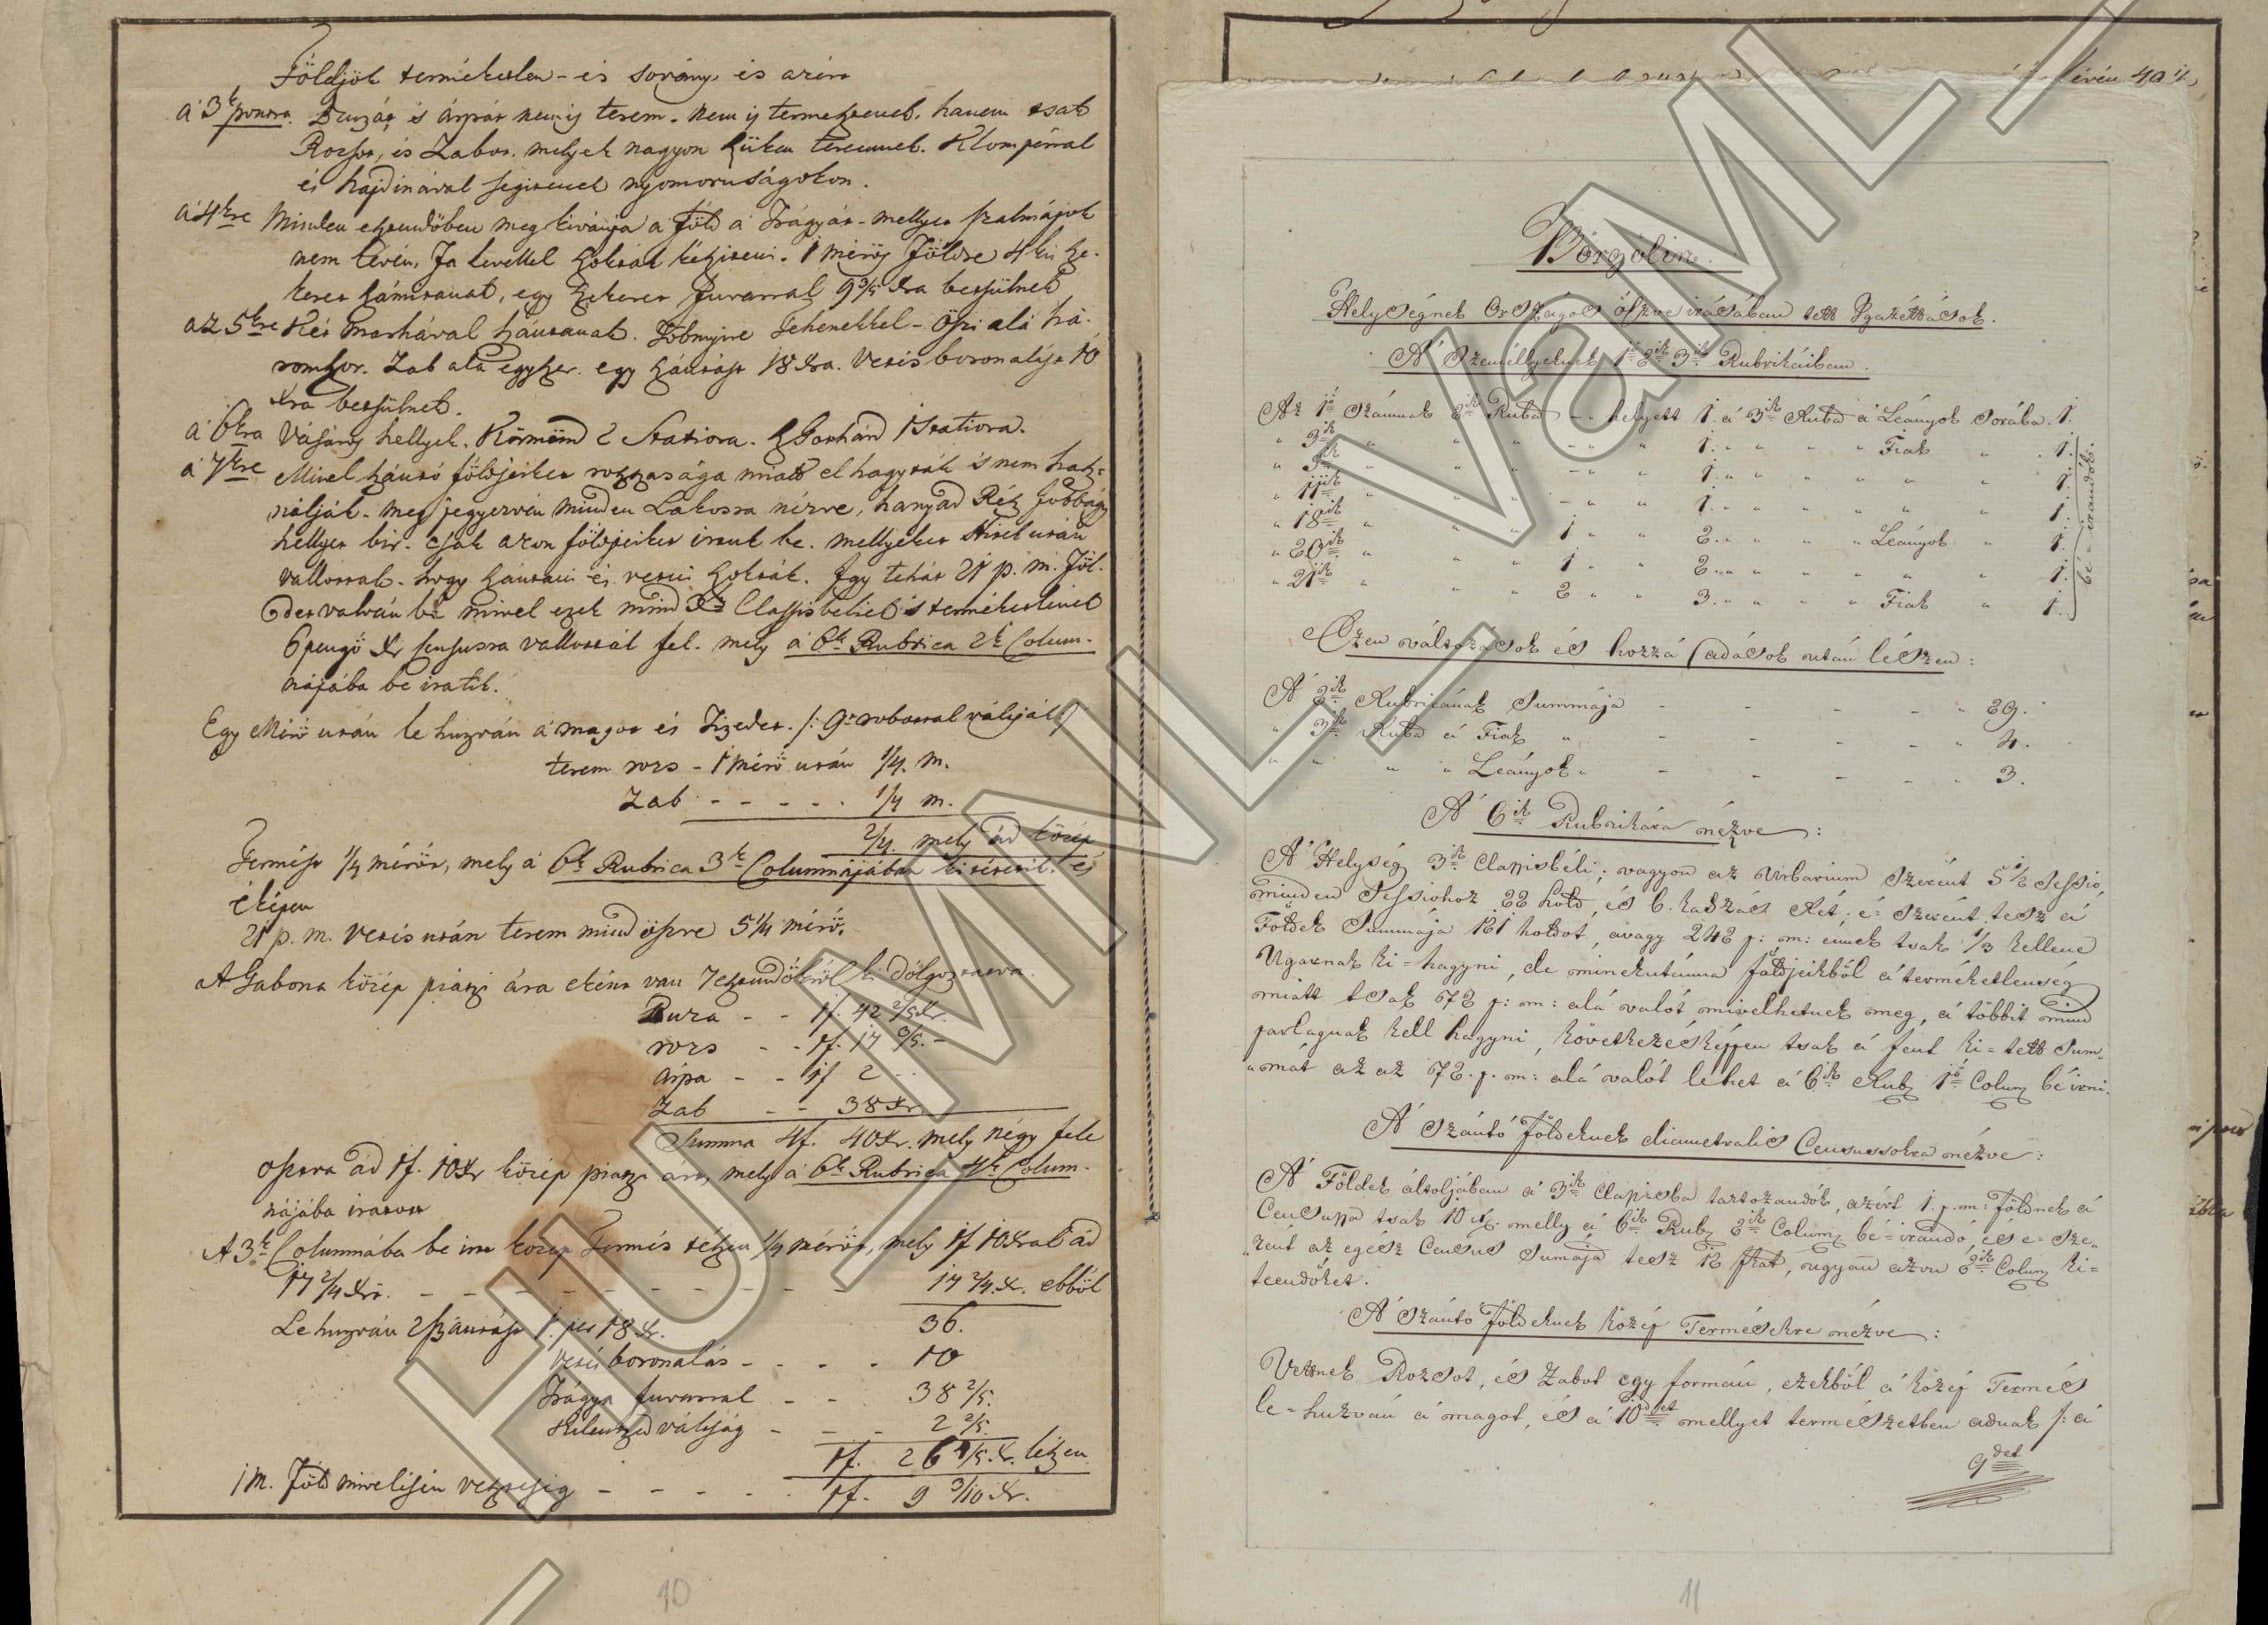 Földjök terméketlen - és sovány és azért
á 3k ponora. Buzát és árpát nem is terem - nem is termesztenek. hanem tsak
Rozsot, és Zabot. melyek nagyon szűken teremnek. Klompérral
és hajdinával segitenek nyomoruságokon.
á 4kre Minden esztendőben meg kivánja a Föld a Trágyát - mellyet szalmájok
nem lévén, fa levéllel szokták készíteni. 1 mérős Földre 4 kis sze-
keret számitanak, egy szekeret fuvarral 9 3/5 xra betsülnek
az 5kre Két marhával szántanak. Többnyire Tehenekkel - Öszi alá há-
romszor. Zab alá egyszer. egy szántást 18 xra. Vetés boronálást 10
xra betsülnek.
á 6kra Vásáros hellyek. Körmönd 2 Statiora. Sz Gothárd 1 Statiora.
á 7kre Mivel szántó földjeiket rosszasága miatt el hagyták és nem hasz-
nálják - meg jegyezvén minden Lakosra nézve, hanyad Rész Jobbágy
hellyet bir. csak azon földjeiket irtuk be. mellyeket Hitel után
vallottak - hogy szántani és vetni szokták. Igy tehát 21 p. m. Föl-
det valván bé mivel ezek mind 3k Classisbeliek és terméketlenek
6 pengő xr sensusra vallották fel. mely á 6k Rubrica 2k Colum-
nájába be iratik.
Egy Mérő után le huzván á magot és Tizedet. /: 9t robottal váltják :/
terem rozs - 1 mérő után 1/4. m.
Zab - - - - - 1/4 m.
2/4. mely ád közép
Termést 1/4 mérőt, mely á 6k Rubrica 3k Columnájában ki tétetik. és
eképen
21 p. m. vetés után terem mind öszve 5 1/4 mérő.
A Gabona közép piatzi ára eként van 7 esztendőkről ki dolgoztatva.
Buza - - 1f. 42 2/5 xr.
rozs - - 1f. 17 3/5. -
árpa - - 1f 2 - -
Zab - - 38 xr.
Summa 4f. 40 xr. mely négy fele
osztva ád 1f. 10 xr közép piatzi árt, mely á 6k Rubrica 4k Colum-
nájába iratott
A 3k Columnába be irt közép Termés tészen 1/4 mérőt, mely 1f 10 xral ád
17 2/4 xrt. - - - - - - - - - 17 2/4. x. ebből
Le huzván 2 szántást 1. per 18 xr. 36.
Vetés boronálás - - - - 10
Trágya fuvarral - - 38 2/5.
Kilentzed váltság - - - 2 2/5.
1f. 26 4/5. x. lészen
1 m. Föld mivelésén veszteség - - - - - 1f. 9 3/10 xr.
10
lévén 4a
Börgölin.
Helységnek Országos öszve irásában tett Igazittások.
A' Személlyeknek 1ső 2ik 3ik Rubrikáiban.
Az 1ső Számnak 2ik Rubd - - helyett 1. á 3ik Rubd a' Leányok Sorába. 1.
" 3ik " " " - " " 1. " " " " Fiak " . 1.
" 5ik " " " - " " 1. " " " " " " 1.
" 11ik " " " - " " 1. " " " " " " 1.
" 18ik " " " 1 " " 2. " " " " Leányok " 1.
" 20ik " " " 1 " " 2. " " " " " " 1.
" 21ik " " " 2 " " 3. " " " " Fiak " 1.
bé = irandók.
Ezen változások és hozzá adások után lészen:
A' 2ik Rubricának Summája - - - - - " 29.
" 3ik Rubd á Fiak " - - - - - " 4.
" " " " Leányok " - - - - - " 3.
A' 6ik Rubrikára nézve:
A' Helység 3ik Classisbéli; vagyon az Urbarium szerént 5 1/2 Sessio,
minden Sessiohoz 22 hold, és 6. kaszás Rét; e' szerént tesz á
Földek Summája 121 holdot, avagy 242 p: m: ennek tsak 1/3 kellene
Ugarnak ki = hagyni, de minekutánna földjeikből á terméketlenség
miatt tsak 72 p: m: alá valót mivelhetnek meg, á többit mind
parlagnak kell hagyni, következésképpen tsak á fent ki = tett Sum-
"mát az az 72. p. m: alá valót lehet á 6ik Rub 1ső Colum bé irni.
A' szántó Földeknek diametralis Censussokra nézve:
A' Földek általjában á 3ik Classisba tartozandók, azért 1. p. m: földnek á
Censussa tsak 10 xr. melly á 6ik Rub 2ik Colum bé = irandó, és e = sze-
"rént az egész Census Sumája tesz 12 fkat, ugyan azon 2ik Colum ki =
teendőket.
A' Szántó Földeknek közép Termésekre nézve:
Vetnek Rozsot, és Zabot egy formán, ezekből á közép Termés
le = huzván á magot, és á 10det mellyet természetben adnak /: á
9det
11